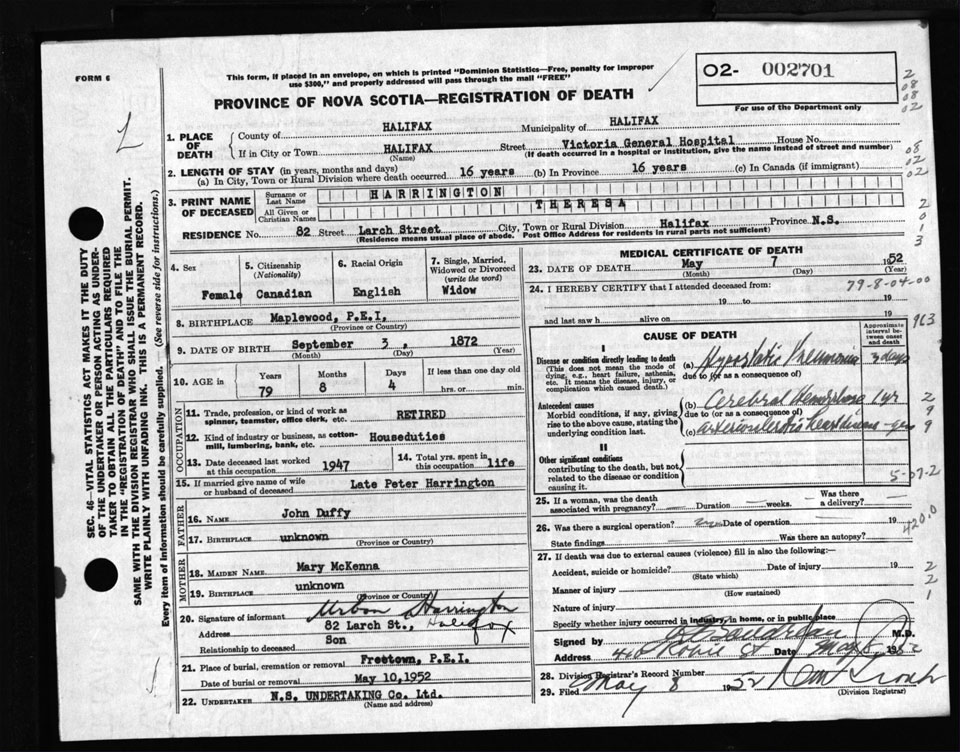 FORM 6
This form, if placed in an envelope, on which is printed "Dominion Statistics—Free, penalty for improper
use $300," and properly addressed will pass through the mail "FREE"
02- 002701
For use of the Department only
PROVINCE OF NOVA SCOTIA—REGISTRATION OF DEATH
1. PLACE OF DEATH
County of HALIFAX Municipality of HALIFAX
If in City or Town HALIFAX (Name) Street Victoria General Hospital House No.
(If death occurred in a hospital or institution, give the name instead of street and number)
2. LENGTH OF STAY (in years, months and days)
(a) In City, Town or Rural Division where death occurred 16 years (b) In Province 16 years (c) In Canada (if immigrant)
3. PRINT NAME OF DECEASED
Surname or Last Name HARRINGTON
All Given or Christian Names THERESA
RESIDENCE No. 82 Street Larch Street City, Town or Rural Division Halifax Province N.S.
(Residence means usual place of abode. Post Office Address for residents in rural parts not sufficient)
4. Sex
Female
5. Citizenship (Nationality)
Canadian
6. Racial Origin
English
7. Single, Married, Widowed or Divorced (write the word)
Widow
8. BIRTHPLACE Maplewood, P.E.I.
(Province or Country)
9. DATE OF BIRTH September 3, 1872
(Month) (Day) (Year)
10. AGE in Years Months Days If less than one day old
79 8 4 hrs. or min.
OCCUPATION
11. Trade, profession, or kind of work as spinner, teamster, office clerk, etc. RETIRED
12. Kind of industry or business, as cotton-mill, lumbering, bank, etc. Houseduties
13. Date deceased last worked at this occupation 1947
14. Total yrs. spent in this occupation life
15. If married give name of wife or husband of deceased Late Peter Harrington
FATHER
16. NAME John Duffy
17. BIRTHPLACE unknown
(Province or Country)
MOTHER
18. MAIDEN NAME Mary McKenna
19. BIRTHPLACE unknown
(Province or Country)
20. Signature of informant Urban Harrington
Address 82 Larch St., Halifax
Relationship to deceased Son
21. Place of burial, cremation or removal Freetown, P.E.I.
Date of burial or removal May 10, 1952
22. UNDERTAKER N.S. UNDERTAKING Co. Ltd.
(Name and address)
MEDICAL CERTIFICATE OF DEATH
23. DATE OF DEATH May 7 1952
(Month) (Day) (Year)
24. I HEREBY CERTIFY that I attended deceased from:
79-8-04-00
19 to 19
and last saw h alive on 19
963
CAUSE OF DEATH
Approximate interval between onset and death
I
Disease or condition directly leading to death
(This does not mean the mode of dying, e.g., heart failure, asthenia, etc. It means the disease, injury, or complication which caused death.)
(a) Hypostatic Pneumonia 3 days
due to (or as a consequence of)
Antecedent causes
Morbid conditions, if any, giving rise to the above cause, stating the underlying condition last.
(b) Cerebral Hemorrhage 1 yr
due to (or as a consequence of)
(c) arteriosclerotic heart disease
II
Other significant conditions
contributing to the death, but not related to the disease or condition causing it.
5-07-2
25. If a woman, was the death associated with pregnancy? Duration weeks. Was there a delivery?
26. Was there a surgical operation? Date of operation 19
420.0
State findings Was there an autopsy?
27. If death was due to external causes (violence) fill in also the following:—
Accident, suicide or homicide? Date of injury 19
(State which)
Manner of injury
(How sustained)
Nature of injury
Specify whether injury occurred in industry, in home, or in public place
Signed by M.D.
Address Robie St Date May 8 1952
28. Division Registrar's Record Number
29. Filed May 8 1952
(Division Registrar)
SEC. 46—VITAL STATISTICS ACT MAKES IT THE DUTY
OF THE UNDERTAKER OR PERSON ACTING AS UNDER-
TAKER TO OBTAIN ALL THE PARTICULARS REQUIRED
IN THE "REGISTRATION OF DEATH" AND TO FILE THE
SAME WITH THE DIVISION REGISTRAR WHO SHALL ISSUE THE BURIAL PERMIT.
WRITE PLAINLY WITH UNFADING INK. THIS IS A PERMANENT RECORD.
Every item of information should be carefully supplied. (See reverse side for instructions.)